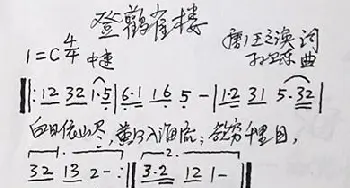 登鹳雀楼
1=C 4/4 中速 唐 王之涣 词
曲
‖: 12 32 1·5 | 6·1 16 5 - | 1·2 31 5·32 |
白日依山尽，黄河入海流；欲穷千里目，
1. 32 13 2 - :‖ 2. 3·2 12 1 - ‖